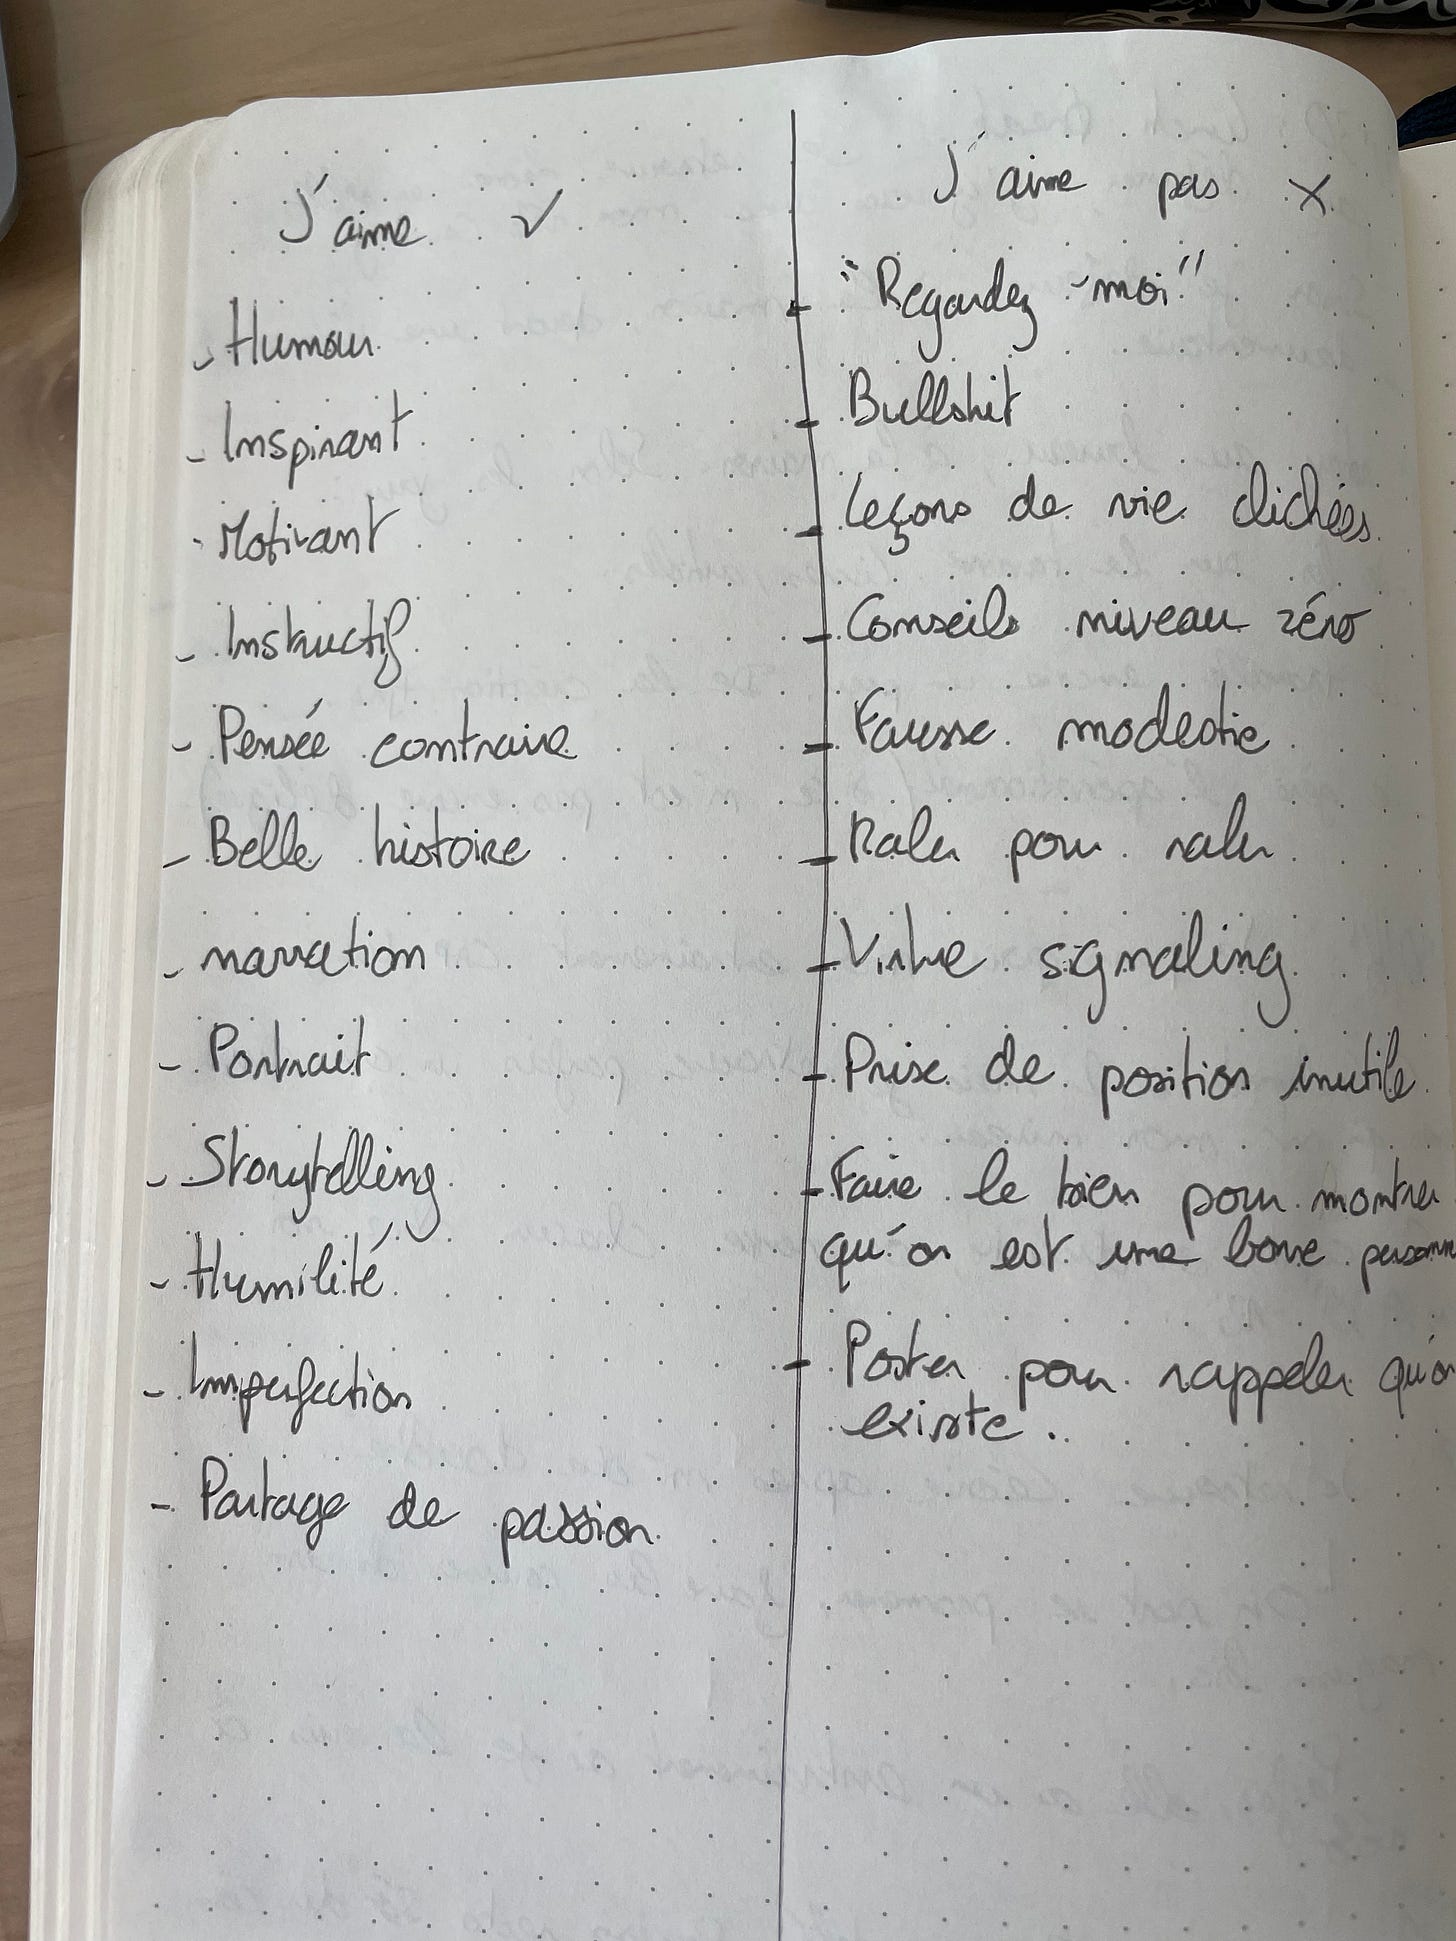 J'aime ✓
- Humour
- Inspirant
- Motivant
- Instructif
- Pensée contraire
- Belle histoire
- narration
- Portrait
- Storytelling
- Humilité
- Imperfection
- Partage de passion
J'aime pas X
- "Regardez-moi"
- Bullshit
- Leçons de vie clichées
- Conseils niveau zéro
- Fausse modestie
- Raler pour raler
- Virtue signaling
- Prise de position inutile
- Faire le bien pour montrer
qu'on est une bone personne
- Poster pour rappeler qu'on
existe.